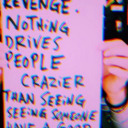 REVENGE.
NOTHING
DRIVES
PEOPLE
CRAZIER
THAN SEEING
SEEING SOMEONE
HAVE A GOOD